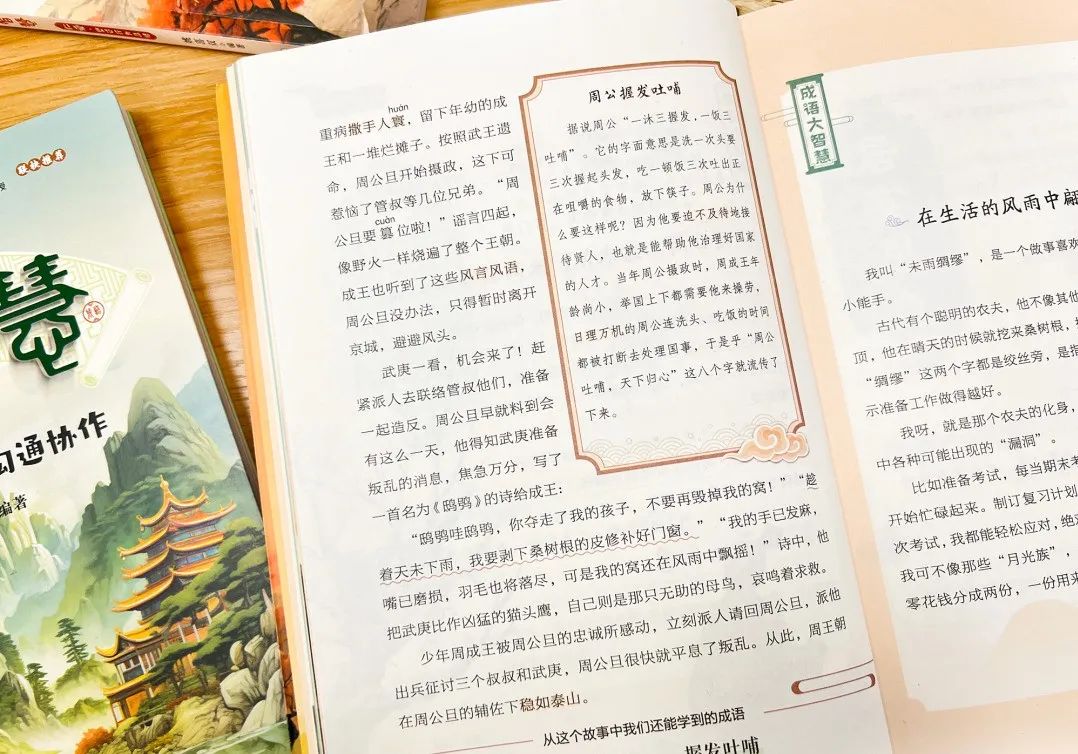 慧
沟通协作
编著
重病撒手人寰，留下年幼的成
huán
王和一堆烂摊子。按照武王遗
命，周公旦开始摄政，这下可
惹恼了管叔等几位兄弟。“周
cuàn
公旦要篡位啦！”谣言四起，
像野火一样烧遍了整个王朝。
成王也听到了这些风言风语，
周公旦没办法，只得暂时离开
京城，避避风头。
武庚一看，机会来了！赶
紧派人去联络管叔他们，准备
一起造反。周公旦早就料到会
有这么一天，他得知武庚准备
叛乱的消息，焦急万分，写了
一首名为《鸱鸮》的诗给成王：
“鸱鸮哇鸱鸮，你夺走了我的孩子，不要再毁掉我的窝！”“趁
着天未下雨，我要剥下桑树根的皮修补好门窗。”“我的手已发麻，
嘴已磨损，羽毛也将落尽，可是我的窝还在风雨中飘摇！”诗中，他
把武庚比作凶猛的猫头鹰，自己则是那只无助的母鸟，哀鸣着求救。
少年周成王被周公旦的忠诚所感动，立刻派人请回周公旦，派他
出兵征讨三个叔叔和武庚，周公旦很快就平息了叛乱。从此，周王朝
在周公旦的辅佐下稳如泰山。
从这个故事中我们还能学到的成语
握发吐哺
周公握发吐哺
据说周公“一沐三握发，一饭三
吐哺”。它的字面意思是洗一次头要
三次握起头发，吃一顿饭三次吐出正
在咀嚼的食物，放下筷子。周公为什
么要这样呢？因为他要迫不及待地接
待贤人，也就是能帮助他治理好国家
的人才。当年周公摄政时，周成王年
龄尚小，举国上下都需要他来操劳，
日理万机的周公连洗头、吃饭的时间
都被打断去处理国事，于是乎“周公
吐哺，天下归心”这八个字就流传了
下来。
成语大智慧
在生活的风雨中
我叫“未雨绸缪”，是一个做事喜欢
小能手。
古代有个聪明的农夫，他不像其他
顶，他在晴天的时候就挖来桑树根，
“绸缪”这两个字都是绞丝旁，是指
示准备工作做得越好。
我呀，就是那个农夫的化身，
中各种可能出现的“漏洞”。
比如准备考试，每当期末考
开始忙碌起来。制订复习计划
次考试，我都能轻松应对，绝
我可不像那些“月光族”，
零花钱分成两份，一份用来